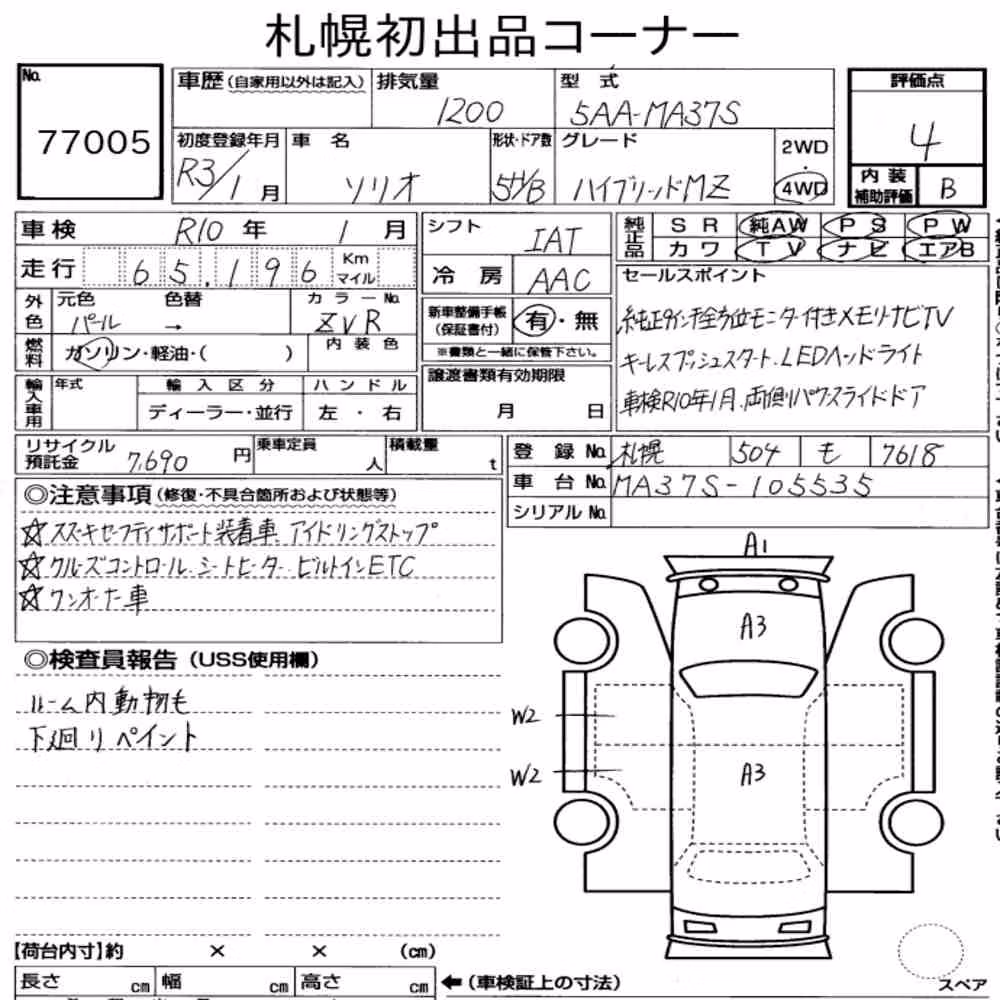 札幌初出品コーナー
No.
77005
車歴(自家用以外は記入) 排気量 1200 型式 5AA-MA37S
初度登録年月 R3/1月 車名 ソリオ 形状・ドア数 5H/B グレード ハイブリッドMZ 2WD・4WD
評価点 4
内装補助評価 B
車検 R10年 1月
走行 65,196 Km マイル
外色 元色 パール 色替 → カラーNo. ZVR
燃料 ガソリン・軽油・( ) 内装色
輸入車用 年式 輸入区分 ディーラー・並行 ハンドル 左・右
シフト IAT
冷房 AAC
新車整備手帳(保証書付) 有・無
※書類と一緒に保管下さい。
譲渡書類有効期限
月 日
純正品 SR 純AW PS PW
カワ TV ナビ エアB
セールスポイント
純正9インチ全方位モニター付きメモリナビTV
キーレスプッシュスタート.LEDヘッドライト
車検R10年1月.両側パワスライドドア
リサイクル預託金 7,690円 乗車定員 人 積載量 t
登録No. 札幌 504 も 7618
車台No. MA37S-105535
シリアルNo.
◎注意事項(修復・不具合箇所および状態等)
☆スズキセーフティサポート装着車.アイドリングストップ
☆クルーズコントロール.シートヒーター.ビルトインETC
☆ワンオーナー車
◎検査員報告(USS使用欄)
ルーム内動物毛
下廻りペイント
A1
A3
W2
W2
A3
【荷台内寸】約 × × (cm)
長さ cm 幅 cm 高さ cm ←(車検証上の寸法)
スペア